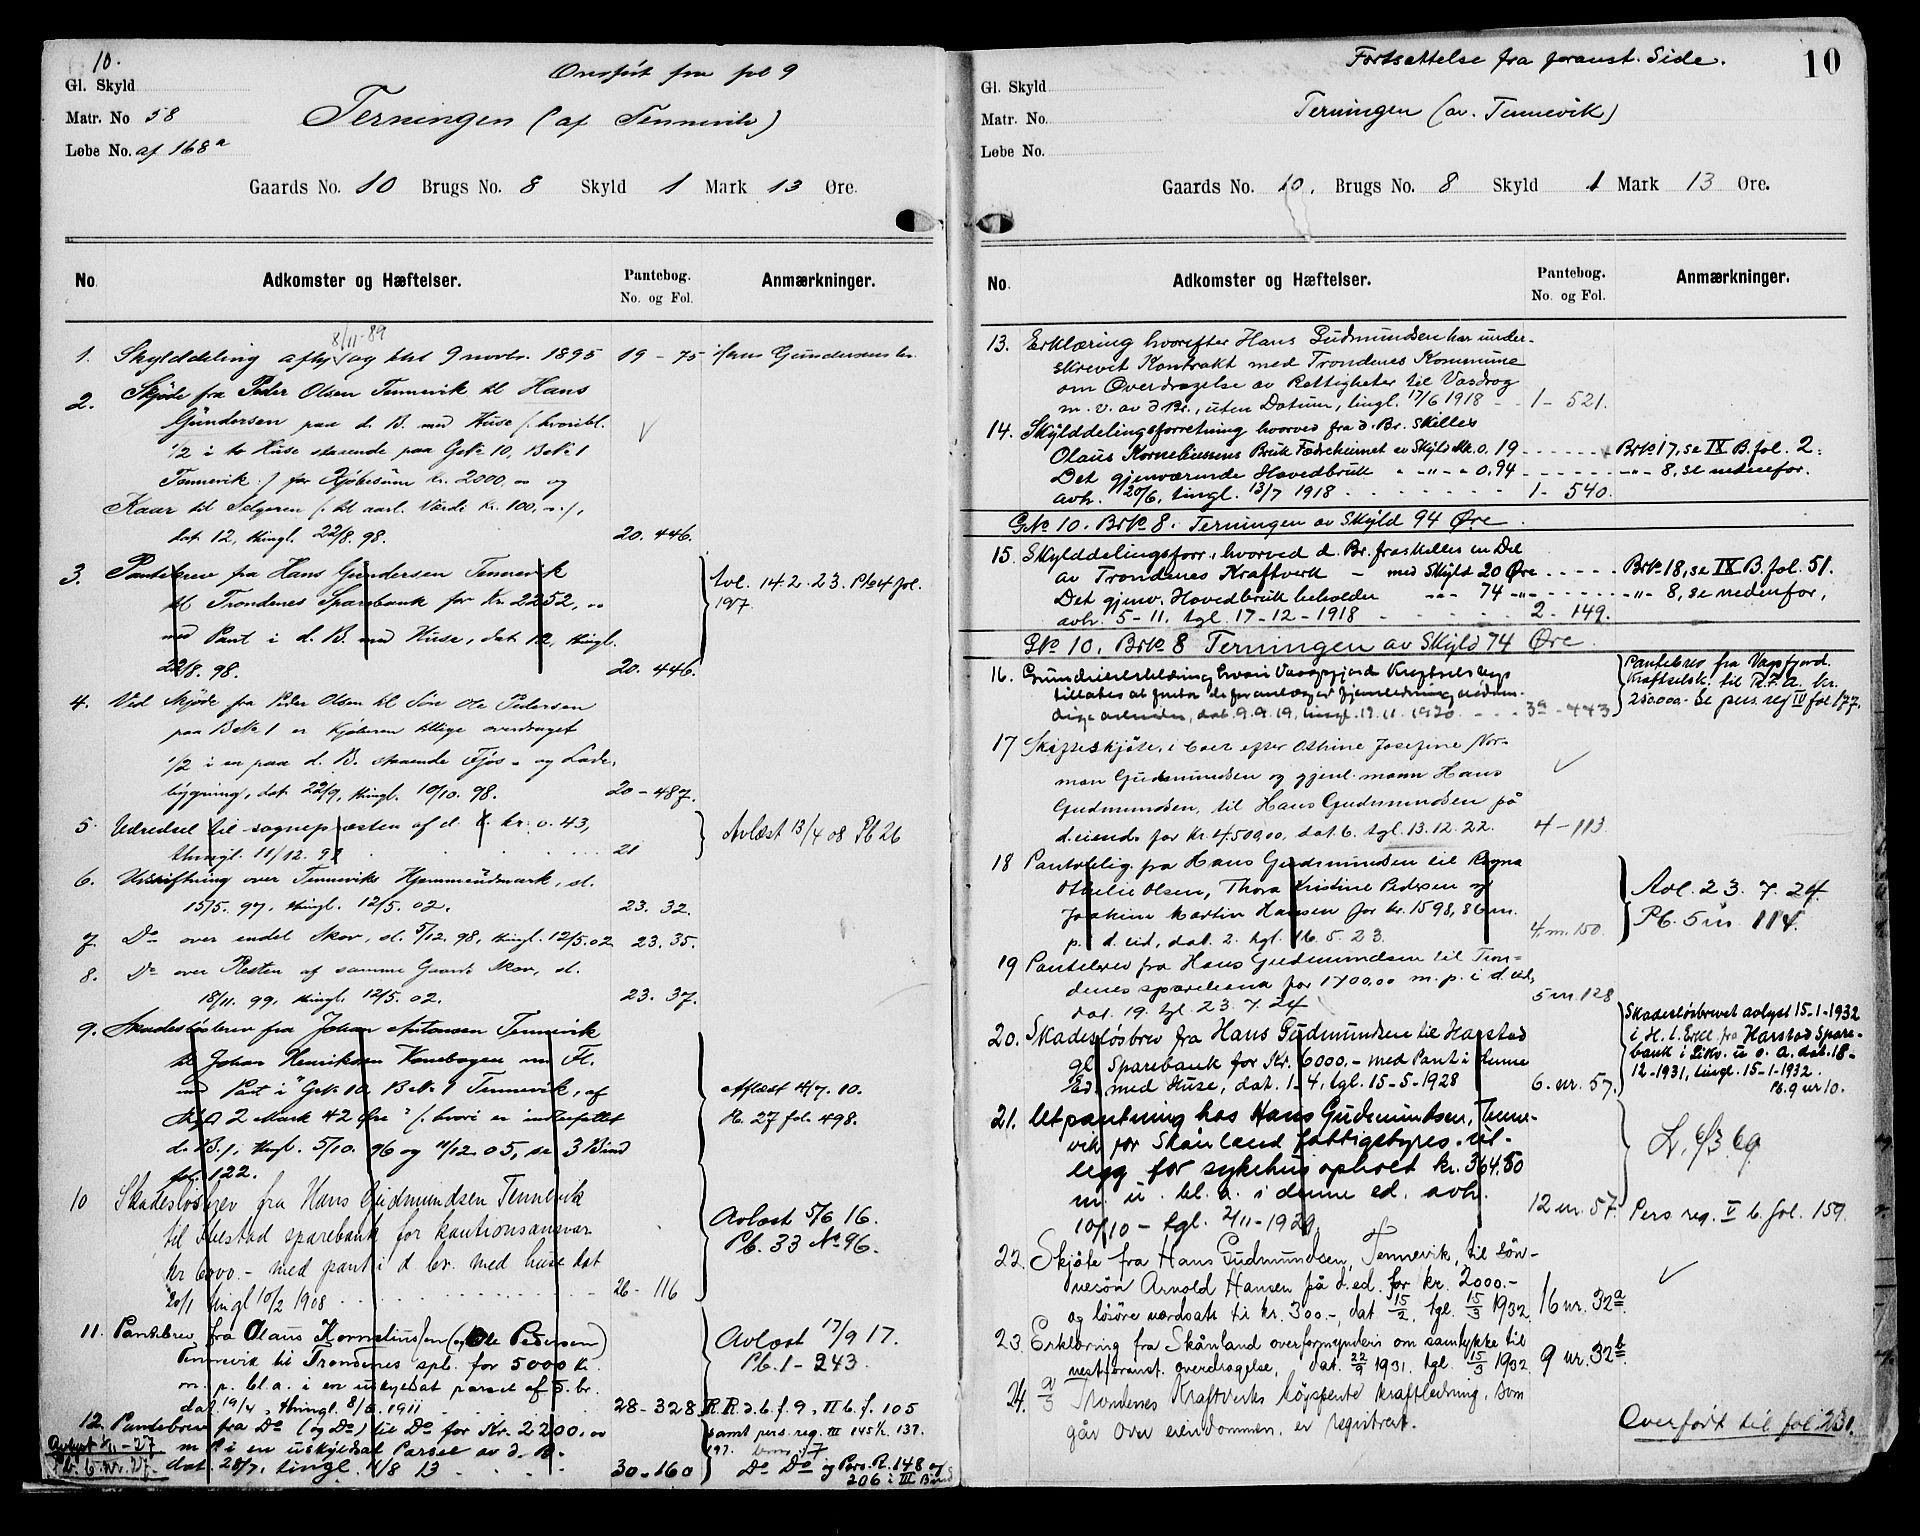 10.
Overført fra fol 9
Gl. Skyld
Matr. No 58
Løbe No. af 168a
Terningen (af Tennevik)
Gaards No. 10 Brugs No. 8 Skyld 1 Mark 13 Øre.
No. Adkomster og Hæftelser. Pantebog. No. og Fol. Anmærkninger.
8/11-89
1. Skylddeling afhj og thl 9 novbr. 1895 19-75 Hans Gundersens
2. Skjøde fra Peder Olsen Tennevik til Hans
Gundersen paa d. B. med Huse (: hvoribl.
1/2 i to Huse staaende paa GNo 10, BNo 1
Tennevik :) for Kjøbesum kr. 2000,00 og
Kaar til Selgeren (: til aarl. Værdi kr. 100,00 :),
dat. 12, thingl. 22/8. 98. 20. 446.
3. Pantebrev fra Hans Gundersen Tennevik
til Trondenes Sparebank for kr. 2252,00
med Pant i d. B. med Huse, dat. 12, thingl.
22/8. 98. 20. 446.
Avl. 14.2.23. Pb 4 fol.
197.
4. Ved Skjøde fra Peder Olsen til Søn Ole Pedersen
paa BNo 1 er Kjøberen tillige overdraget
1/2 i en paa d. B. staaende Fjøs- og Lade-
bygning, dat. 22/9, thingl. 10/10. 98. 20-487.
5. Udredsel til sognepræsten af d. B. kr. 0.43,
thingl. 11/12. 99 21
Avlæst 13/4 08 Pb 26
6. Udskiftning over Tenneviks Hjemmeudmark, sl.
15/5. 97, thingl. 12/5. 02. 23. 32.
7. Do over endel Skov, sl. 5/12. 98, thingl. 12/5. 02 23. 35.
8. Do over Resten af samme Gaards Skov, sl.
18/11. 99, thingl. 12/5. 02. 23. 37.
9. Skadesløsbrev fra Johan Antonsen Tennevik
til Johan Henriksen Kanebogen m Fl.
med Pant i "GNo 10, BNo 1 Tennevik, af
Skyld 2 Mark 42 Øre" (: hvori er indbefattet
d. B.), thingl. 5/10. 96 og 11/12. 05, se 3 Bind
fol. 122.
Aflæst 4/7. 10.
Pb. 27 fol. 498.
10 Skadesløsbrev fra Hans Gudmundsen Tennevik
til Ibestad sparebank for kautionsansvar
kr 6000.- med pant i d br. med huse dat
20/1 tingl 10/2 1908 26-116
Avlæst 5/6 16.
Pb. 33 No 96.
11. Pantebrev fra Olaus Korneliussen (og Ole Pedersen)
Tennevik til Trondenes spb. for 5000 kr.
m. p. bl. a. i en uskyldsat parsel af d. br.
dat. 19/4, thingl. 8/5. 1911 28-328
Avlæst 17/9 17.
Pb. 1-243.
R.R. d. b. f. 9, II b. f. 105
12. Pantebrev fra Do (og Do) til Do for Kr. 2200,00
m P i en uskyldsat Parsel av d. B.
dat. 28/7, tingl. 11/8 13 30-160
samt pers. reg. III 145 137.
197.
Do Do og Pers. R. 148 og
206 i III Bind
Avlyst 1/11-27
Pb. 6. nr. 27.
10
Fortsættelse fra foranst. Side.
Gl. Skyld
Matr. No.
Løbe No.
Terningen (av. Tennevik)
Gaards No. 10. Brugs No. 8 Skyld 1 Mark 13 Øre.
No. Adkomster og Hæftelser. Pantebog. No. og Fol. Anmærkninger.
13. Erklæring hvorefter Hans Gudmundsen har under-
skrevet Kontrakt med Trondenes Kommune
om Overdragelse av Rettigheter til Vasdrag
m. v. av d Br., uten Datum, tingl. 17/6 1918 1-521.
14. Skylddelingsforretning hvorved fra d. Br. skilles
Olaus Korneliussens Bruk Fædreheimet av Skyld Mk. 0,19 BrNo 17, se IX B. fol. 2.
Det gjenværende Hovedbruk " -"- - 0,94 -"- 8, se nedenfor.
avh. 20/6, tingl. 13/7 1918 1-540.
GNo 10. BrNo 8. Terningen av Skyld 94 Øre
15. Skylddelingsforr., hvorved d. Br. fraskilles en Del
av Trondenes Kraftverk - med Skyld 20 Øre BrNo 18, se IX B. fol. 51.
Det gjenv. Hovedbruk beholder -"- 74 -"- -"- 8, se nedenfor,
avh. 5-11, tgl. 17-12-1918 2-149.
GNo 10. BrNo 8 Terningen av Skyld 74 Øre.
16. Grundeiererklæring hvori Vaagsfjord Kraftselskap
tillates at føre de for anlæg av fjernledning nødven-
dige arbeider, dat. 9.9.19, tingl. 19.11.1920 3a-443
Pantebrev fra Vagsfjord.
Kraftselsk. til R.F.A. kr.
250000.- Se pers. reg IV fol 177.
17 Skifteskjøte, i boer efter Othine Josefine Nor-
man Gudmundsen og gjenl. mann Hans
Gudmundsen, til Hans Gudmundsen på
d. eiend. for kr. 4500,00, dat. 6. tgl. 13.12.22. 4-113
18 Pantoblig. fra Hans Gudmundsen til Ragna
Othelie Olsen, Thora Kristine Pedersen og
Joakim Martin Hansen for kr. 1598,86 m.
p. i d. eid, dat. 2. tgl. 16.5.23. 4. nr. 150.
Avl. 23.7.24.
Pb. 5 nr. 114.
19 Pantebrev fra Hans Gudmundsen til Tron-
denes sparebank for 1700,00 m. p. i d. eid,
dat. 19. tgl. 23.7.24 5 nr. 128
20. Skadesløsbrev fra Hans Gudmundsen til Harstad
gl. Sparebank for Kr. 6000.- med Pant i denne
Ed. med Huse, dat. 1-4, tgl. 15-5-1928 6. nr. 57.
Skadesløsbrevet avlyst 15-1-1932
i H. t. Erkl. fra Harstad Spare-
bank i Likv. u o. A. dat. 18-
12-1931, tingl. 15-1-1932.
Pb. 9 nr 10.
21. Utpantning hos Hans Gudmundsen, Tenne-
vik for Skånland fattigstyres utl-
legg for sykehusophold kr. 364.50
m. u. bl. a. i denne ed. avh.
10/10 - tgl. 2/11-1929 12 nr. 57.
L. 6/3 69
Pers reg. V b. fol. 159.
22. Skjøte fra Hans Gudmundsen, Tennevik, til søn-
nesøn Arnold Hansen på d. ed. for kr. 2000.-
og løsøre værdsatt til kr. 300.-, dat 15/2, tgl. 15/3 1932 16 nr. 32a.
23. Erklæring fra Skånland overformynderi om samtykke til
nestforanst. overdragelse, dat. 22/9 1931. tgl. 15/3 1932 9 nr. 32b.
24. Trondenes Kraftverks høyspente kraftledning, som
går over eiendommen, er registrert.
Overført til fol 231.